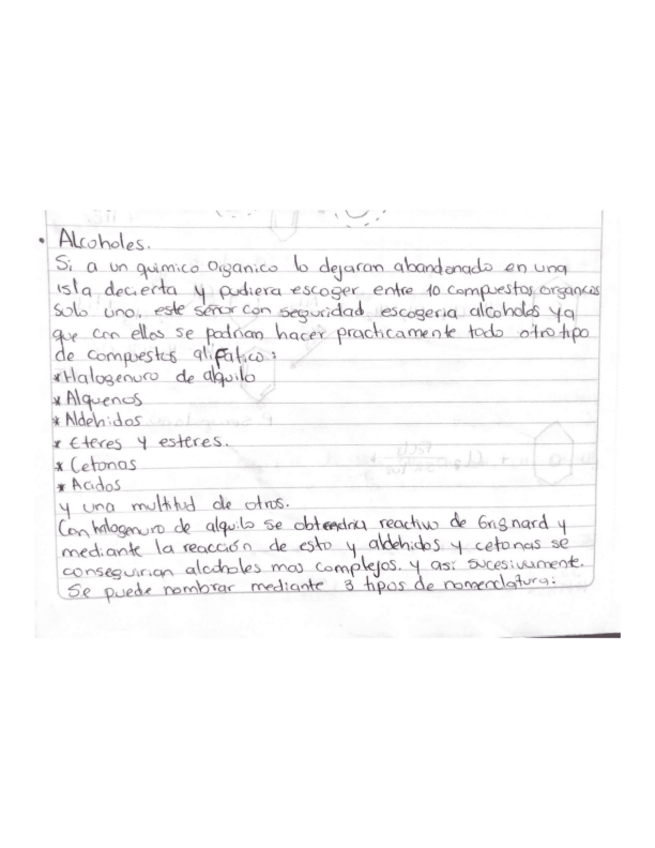 • Alcoholes.
Si a un quimico organico lo dejaran abandonado en una
isla decierta y pudiera escoger entre 10 compuestos organcos
solo uno, este señor con seguridad escogeria alcoholes ya
que con ellos se podrian hacer practicamente todo otro tipo
de compuestos alifatico:
*Halogenuro de alquilo
* Alquenos
* Aldehidos
* Eteres y esteres.
* Cetonas
* Acidos
y una multitud de otros.
Con halogenuro de alquilo se obtendria reactivo de Grignard y
mediante la reacción de esto y aldehidos y cetonas se
conseguirian alcoholes mas complejos. y asi sucesivamente.
Se puede nombrar mediante 3 tipos de nomenclatura: